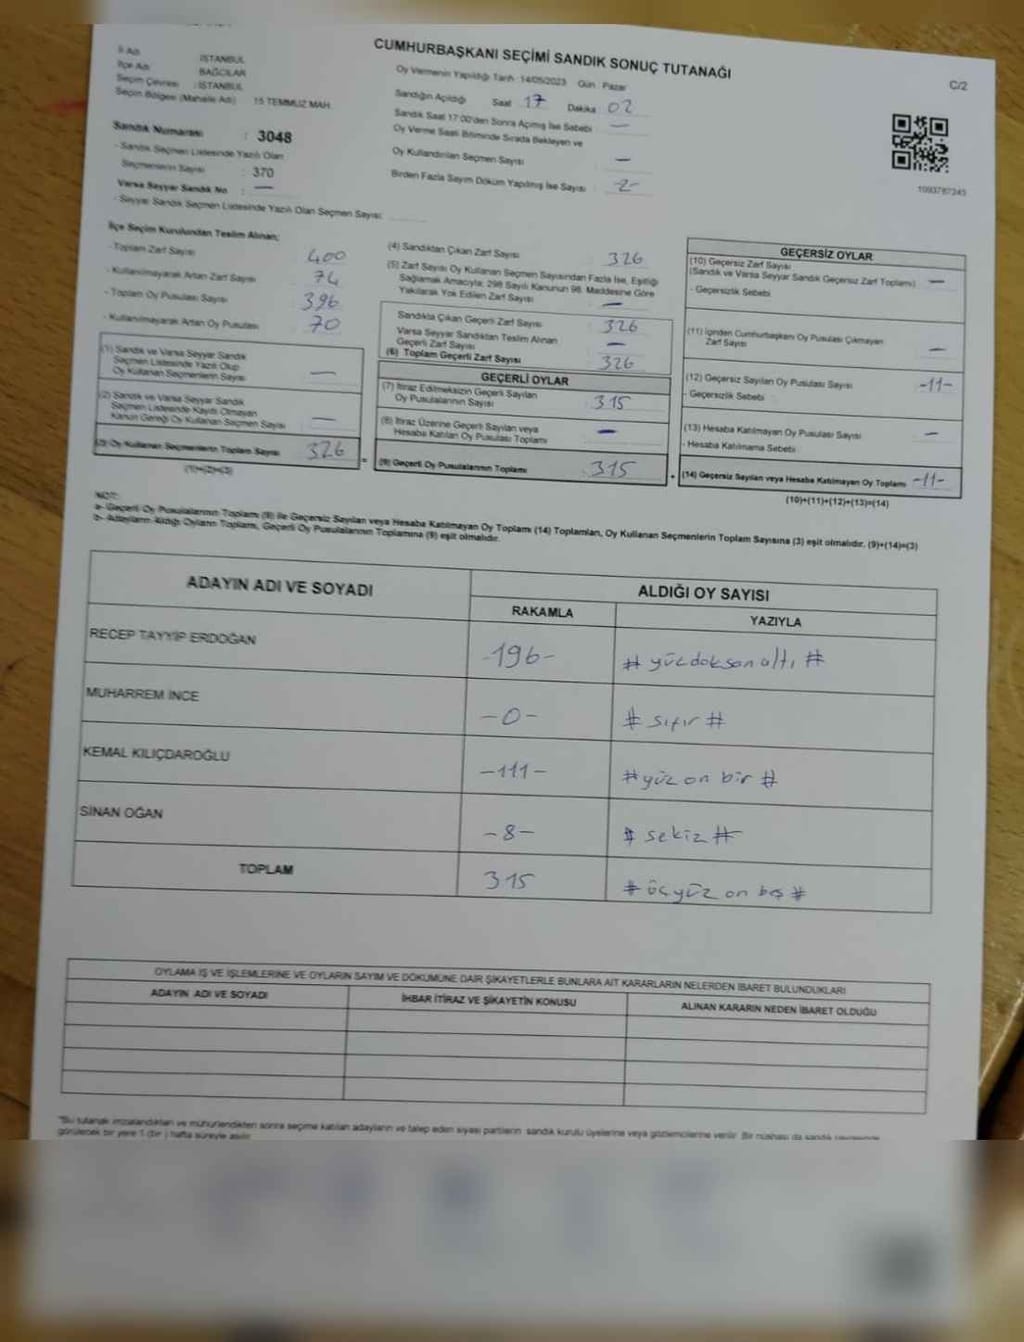 CUMHURBAŞKANI SEÇİMİ SANDIK SONUÇ TUTANAĞI
C/2
İl Adı İSTANBUL
İlçe Adı BAĞCILAR
Seçim Çevresi : İSTANBUL
Seçim Bölgesi (Mahalle Adı) 15 TEMMUZ MAH.
Oy Vermenin Yapıldığı Tarih :14/05/2023 Gün : Pazar
Sandığın Açıldığı Saat 17 Dakika 02
Sandık Saat 17:00'den Sonra Açılmış İse Sebebi —
Oy Verme Saati Bitiminde Sırada Bekleyen ve
Oy Kullandırılan Seçmen Sayısı —
Birden Fazla Sayım Döküm Yapılmış İse Sayısı : -2-
1093787345
Sandık Numarası : 3048
- Sandık Seçmen Listesinde Yazılı Olan
Seçmenlerin Sayısı : 370
Varsa Seyyar Sandık No : —
- Seyyar Sandık Seçmen Listesinde Yazılı Olan Seçmen Sayısı:
İlçe Seçim Kurulundan Teslim Alınan;
- Toplam Zarf Sayısı 400
- Kullanılmayarak Artan Zarf Sayısı : 74
- Toplam Oy Pusulası Sayısı 396
- Kullanılmayarak Artan Oy Pusulası : 70
(1) Sandık ve Varsa Seyyar Sandık
Seçmen Listesinde Yazılı Olup
Oy Kullanan Seçmenlerin Sayısı —
(2) Sandık ve Varsa Seyyar Sandık
Seçmen Listesinde Kayıtlı Olmayan
Kanun Gereği Oy Kullanan Seçmen Sayısı —
(3) Oy Kullanan Seçmenlerin Toplam Sayısı 326
(1)+(2)=(3)
(4) Sandıktan Çıkan Zarf Sayısı : 326
(5) Zarf Sayısı Oy Kullanan Seçmen Sayısından Fazla İse, Eşitliği
Sağlamak Amacıyla; 298 Sayılı Kanunun 98. Maddesine Göre
Yakılarak Yok Edilen Zarf Sayısı —
Sandıkta Çıkan Geçerli Zarf Sayısı : 326
Varsa Seyyar Sandıktan Teslim Alınan
Geçerli Zarf Sayısı —
(6) Toplam Geçerli Zarf Sayısı 326
GEÇERLİ OYLAR
(7) İtiraz Edilmeksizin Geçerli Sayılan
Oy Pusulalarının Sayısı : 315
(8) İtiraz Üzerine Geçerli Sayılan veya
Hesaba Katılan Oy Pusulası Toplamı —
= (9) Geçerli Oy Pusulalarının Toplamı : 315
GEÇERSİZ OYLAR
(10) Geçersiz Zarf Sayısı
(Sandık ve Varsa Seyyar Sandık Geçersiz Zarf Toplamı) —
- Geçersizlik Sebebi
(11) İçinden Cumhurbaşkanı Oy Pusulası Çıkmayan
Zarf Sayısı —
(12) Geçersiz Sayılan Oy Pusulası Sayısı -11-
- Geçersizlik Sebebi
(13) Hesaba Katılmayan Oy Pusulası Sayısı —
- Hesaba Katılmama Sebebi
+ (14) Geçersiz Sayılan veya Hesaba Katılmayan Oy Toplamı -11-
(10)+(11)+(12)+(13)=(14)
NOT:
a- Geçerli Oy Pusulalarının Toplamı (9) ile Geçersiz Sayılan veya Hesaba Katılmayan Oy Toplamı (14) Toplamları, Oy Kullanan Seçmenlerin Toplam Sayısına (3) eşit olmalıdır. (9)+(14)=(3)
b- Adayların Aldığı Oyların Toplamı, Geçerli Oy Pusulalarının Toplamına (9) eşit olmalıdır.
ADAYIN ADI VE SOYADI ALDIĞI OY SAYISI
RAKAMLA YAZIYLA
RECEP TAYYİP ERDOĞAN -196- # yüzdoksanaltı #
MUHARREM İNCE -0- # sıfır #
KEMAL KILIÇDAROĞLU -111- # yüz on bir #
SİNAN OĞAN -8- # sekiz #
TOPLAM 315 # üçyüz on beş #
OYLAMA İŞ VE İŞLEMLERİNE VE OYLARIN SAYIM VE DÖKÜMÜNE DAİR ŞİKAYETLERLE BUNLARA AİT KARARLARIN NELERDEN İBARET BULUNDUKLARI
ADAYIN ADI VE SOYADI İHBAR İTİRAZ VE ŞİKAYETİN KONUSU ALINAN KARARIN NEDEN İBARET OLDUĞU
"Bu tutanak imzalandıktan ve mühürlendikten sonra seçime katılan adayların ve talep eden siyasi partilerin sandık kurulu üyelerine veya gözlemcilerine verilir. Bir nüshası da sandık
görülecek bir yere 1 (bir) hafta süreyle asılır.